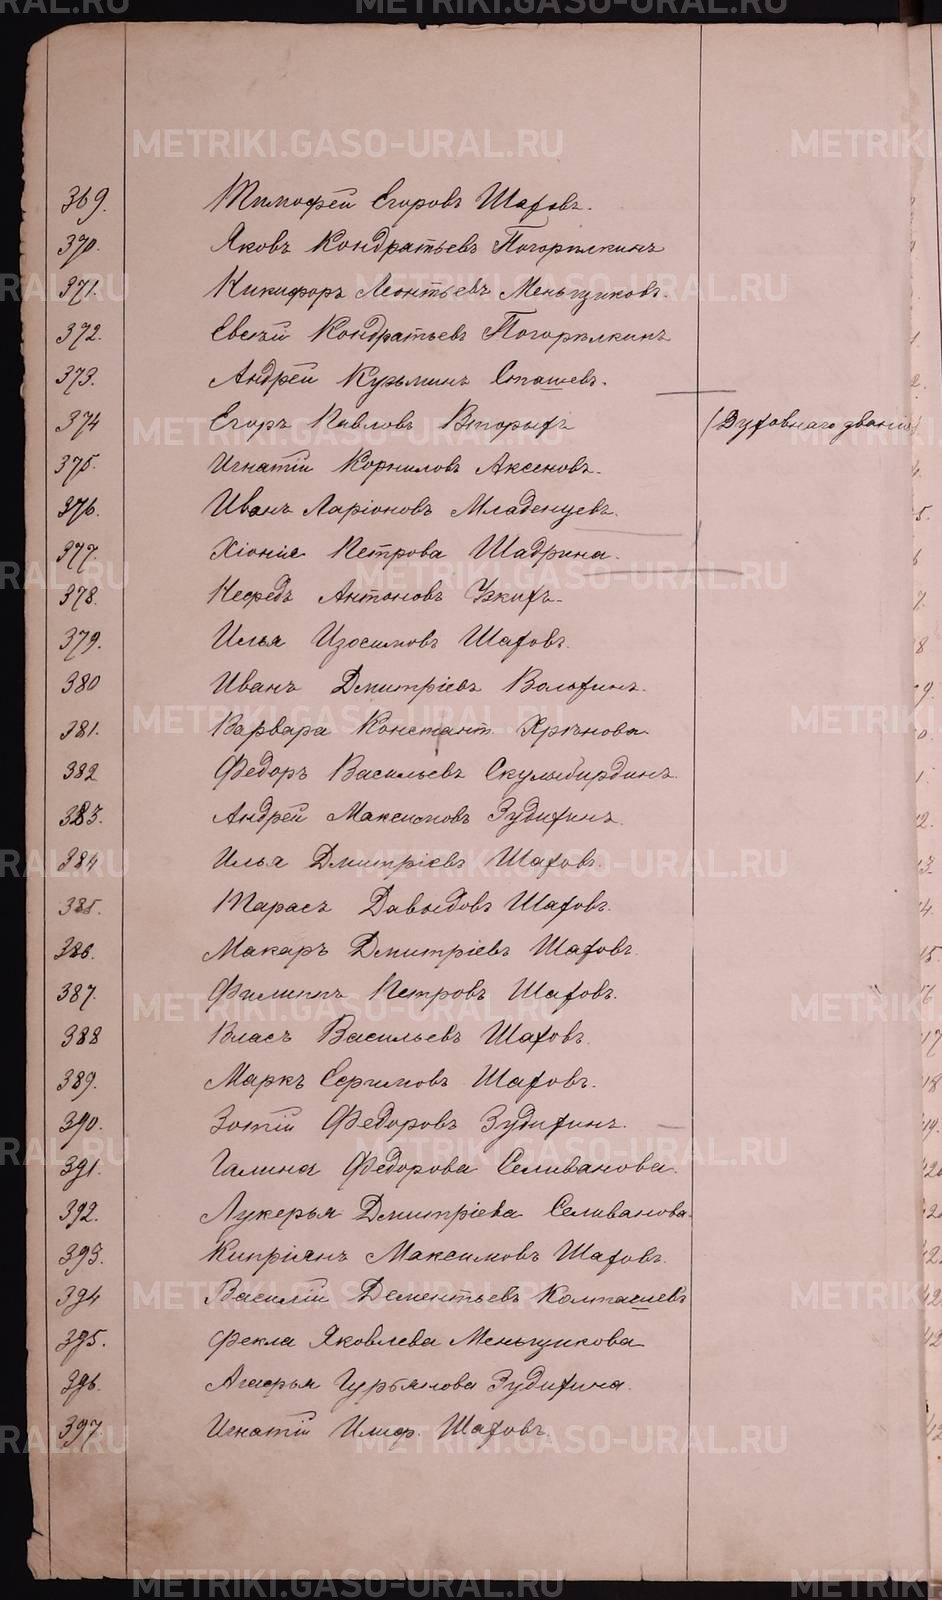 369. Тимофей Егоровъ Шаховъ.
370. Яковъ Кондратьевъ Погорѣлкинъ
371. Никифоръ Леонтьевъ Меньщиковъ.
372. Евсѣй Кондратьевъ Погорѣлкинъ
373. Андрей Кузьминъ Сташевъ.
374 Егоръ Павловъ Вторыхъ (Духовнаго званія)
375. Игнатій Корниловъ Аксеновъ.
376. Иванъ Ларіоновъ Младенцевъ.
377. Хіонія Петрова Шадрина.
378. Нефедъ Антоновъ Узкихъ.
379. Илья Изосимовъ Шаховъ.
380 Иванъ Дмитріевъ Волохинъ.
381. Варвара Констант. Хрѣнова
382 Федоръ Васильевъ Скулыбирдинъ.
383. Андрей Максимовъ Зудихинъ.
384 Илья Дмитріевъ Шаховъ.
385. Тарасъ Давыдовъ Шаховъ.
386. Макаръ Дмитріевъ Шаховъ.
387. Филиппъ Петровъ Шаховъ.
388 Власъ Васильевъ Шаховъ.
389. Маркъ Ефимовъ Шаховъ.
390. Зотій Федоровъ Зудихинъ.
391. Галина Федорова Селиванова.
392. Лукерья Дмитріева Селиванова.
393. Кипріянъ Максимовъ Шаховъ.
394 Василій Дементьевъ Колташевъ
395. Фекла Яковлева Меньщикова
396. Агафья Гурьянова Зудихина.
397. Игнатій Шаховъ.
METRIKI.GASO-URAL.RU